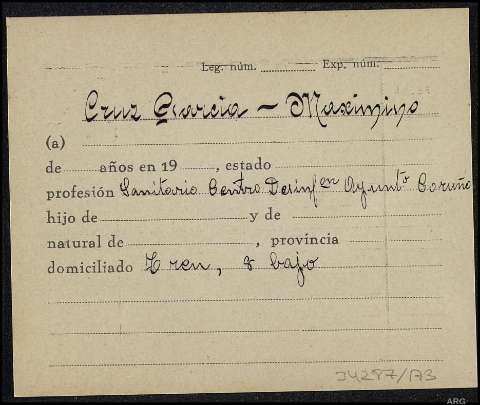 Leg. núm. Exp. núm.
Cruz García - Maximino
(a)
de años en 19 , estado
profesión Sanitario Centro Desinfen Ayuntº Coruña
hijo de y de
natural de , provincia
domiciliado Tren, 8 bajo
J4287/A3
ARG